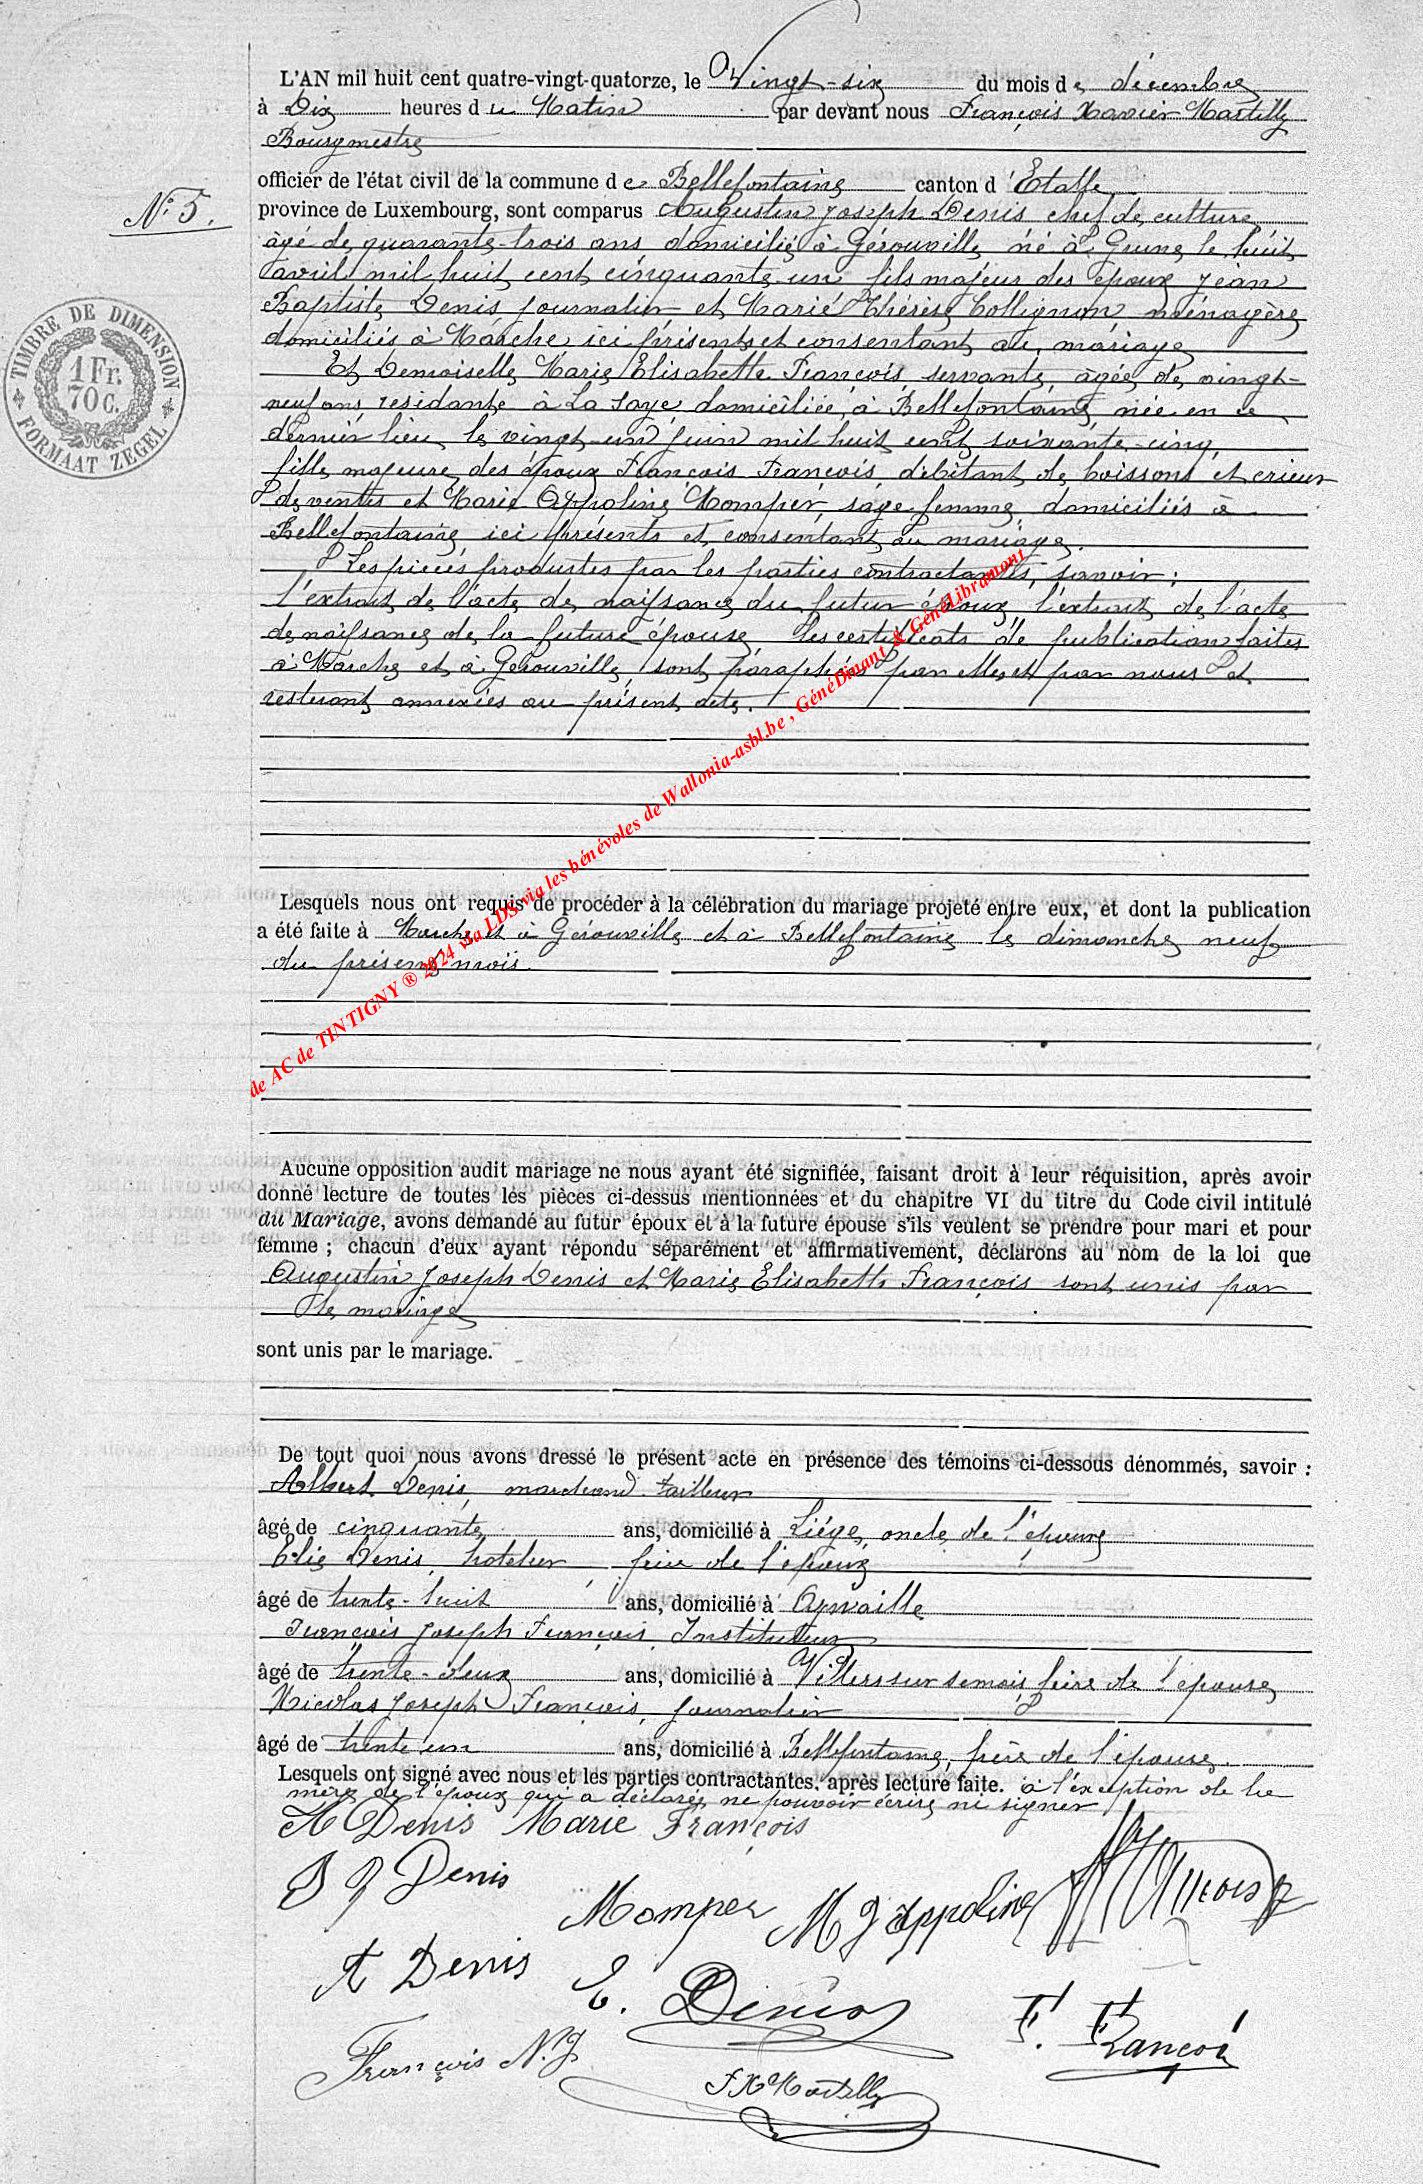 L'AN mil huit cent quatre-vingt-quatorze, le Vingt-six du mois de décembre
à Dix heures du Matin par devant nous François Xavier Martilly
Bourgmestre
officier de l'état civil de la commune de Bellefontaine canton d'Etalle
N° 5.
province de Luxembourg, sont comparus Augustin Joseph Denis chef de culture
âgé de quarante-trois ans domicilié à Gérouville né à Grune le huit
avril mil huit cent cinquante-un fils majeur des époux Jean
Baptiste Denis journalier et Marie Thérèse Collignon ménagère
domiciliés à Marche ici présents et consentant au mariage
Et Demoiselle Marie Elisabeth François, servante, âgée de vingt-
neuf ans, residante à La Soye, domiciliée à Bellefontaine née en ce
dernier lieu le vingt-un juin mil huit cent soixante-cinq,
fille majeure des époux François François, débitant de boissons et crieur
de ventes et Marie Appoline Momper, sage femme, domiciliés à
Bellefontaine ici présents et consentant au mariage.
Les pièces produites par les parties contractantes, savoir :
l'extrait de l'acte de naissance du futur époux, l'extrait de l'acte
de naissance de la future épouse, les certificats de publication faites
à Marche et à Gérouville, sont paraphées par elles et par nous et
resteront annexées au présent acte.
TIMBRE DE DIMENSION
1 Fr.
70 C.
FORMAAT ZEGEL
de AC de TINTIGNY ® 2024 via LDS via les bénévoles de Wallonia-asbl.be , GénéDinant & GénéLibramont
Lesquels nous ont requis de procéder à la célébration du mariage projeté entre eux, et dont la publication
a été faite à Marche et à Gérouville et à Bellefontaine le dimanche neuf
du présent mois.
Aucune opposition audit mariage ne nous ayant été signifiée, faisant droit à leur réquisition, après avoir
donné lecture de toutes les pièces ci-dessus mentionnées et du chapitre VI du titre du Code civil intitulé
du Mariage, avons demandé au futur époux et à la future épouse s'ils veulent se prendre pour mari et pour
femme ; chacun d'eux ayant répondu séparément et affirmativement, déclarons au nom de la loi que
Augustin Joseph Denis et Marie Elisabeth François sont unis par
le mariage
sont unis par le mariage.
De tout quoi nous avons dressé le présent acte en présence des témoins ci-dessous dénommés, savoir :
Albert Denis, marchand tailleur
âgé de cinquante ans, domicilié à Liége, oncle de l'époux
Elie Denis, hotelier, frère de l'époux
âgé de trente-huit ans, domicilié à Aywaille
François Joseph François, Instituteur
âgé de trente-deux ans, domicilié à Villers sur semois, frère de l'épouse,
Nicolas Joseph François, journalier
âgé de trente un ans, domicilié à Bellefontaine, frère de l'épouse.
Lesquels ont signé avec nous et les parties contractantes, après lecture faite. à l'exception de la
mère de l'époux qui a déclaré ne pouvoir écrire ni signer
A Denis Marie François
J J Denis
Momper M J Appoline
A Denis
E. Denis
F. François
François N. J.
F X Martilly